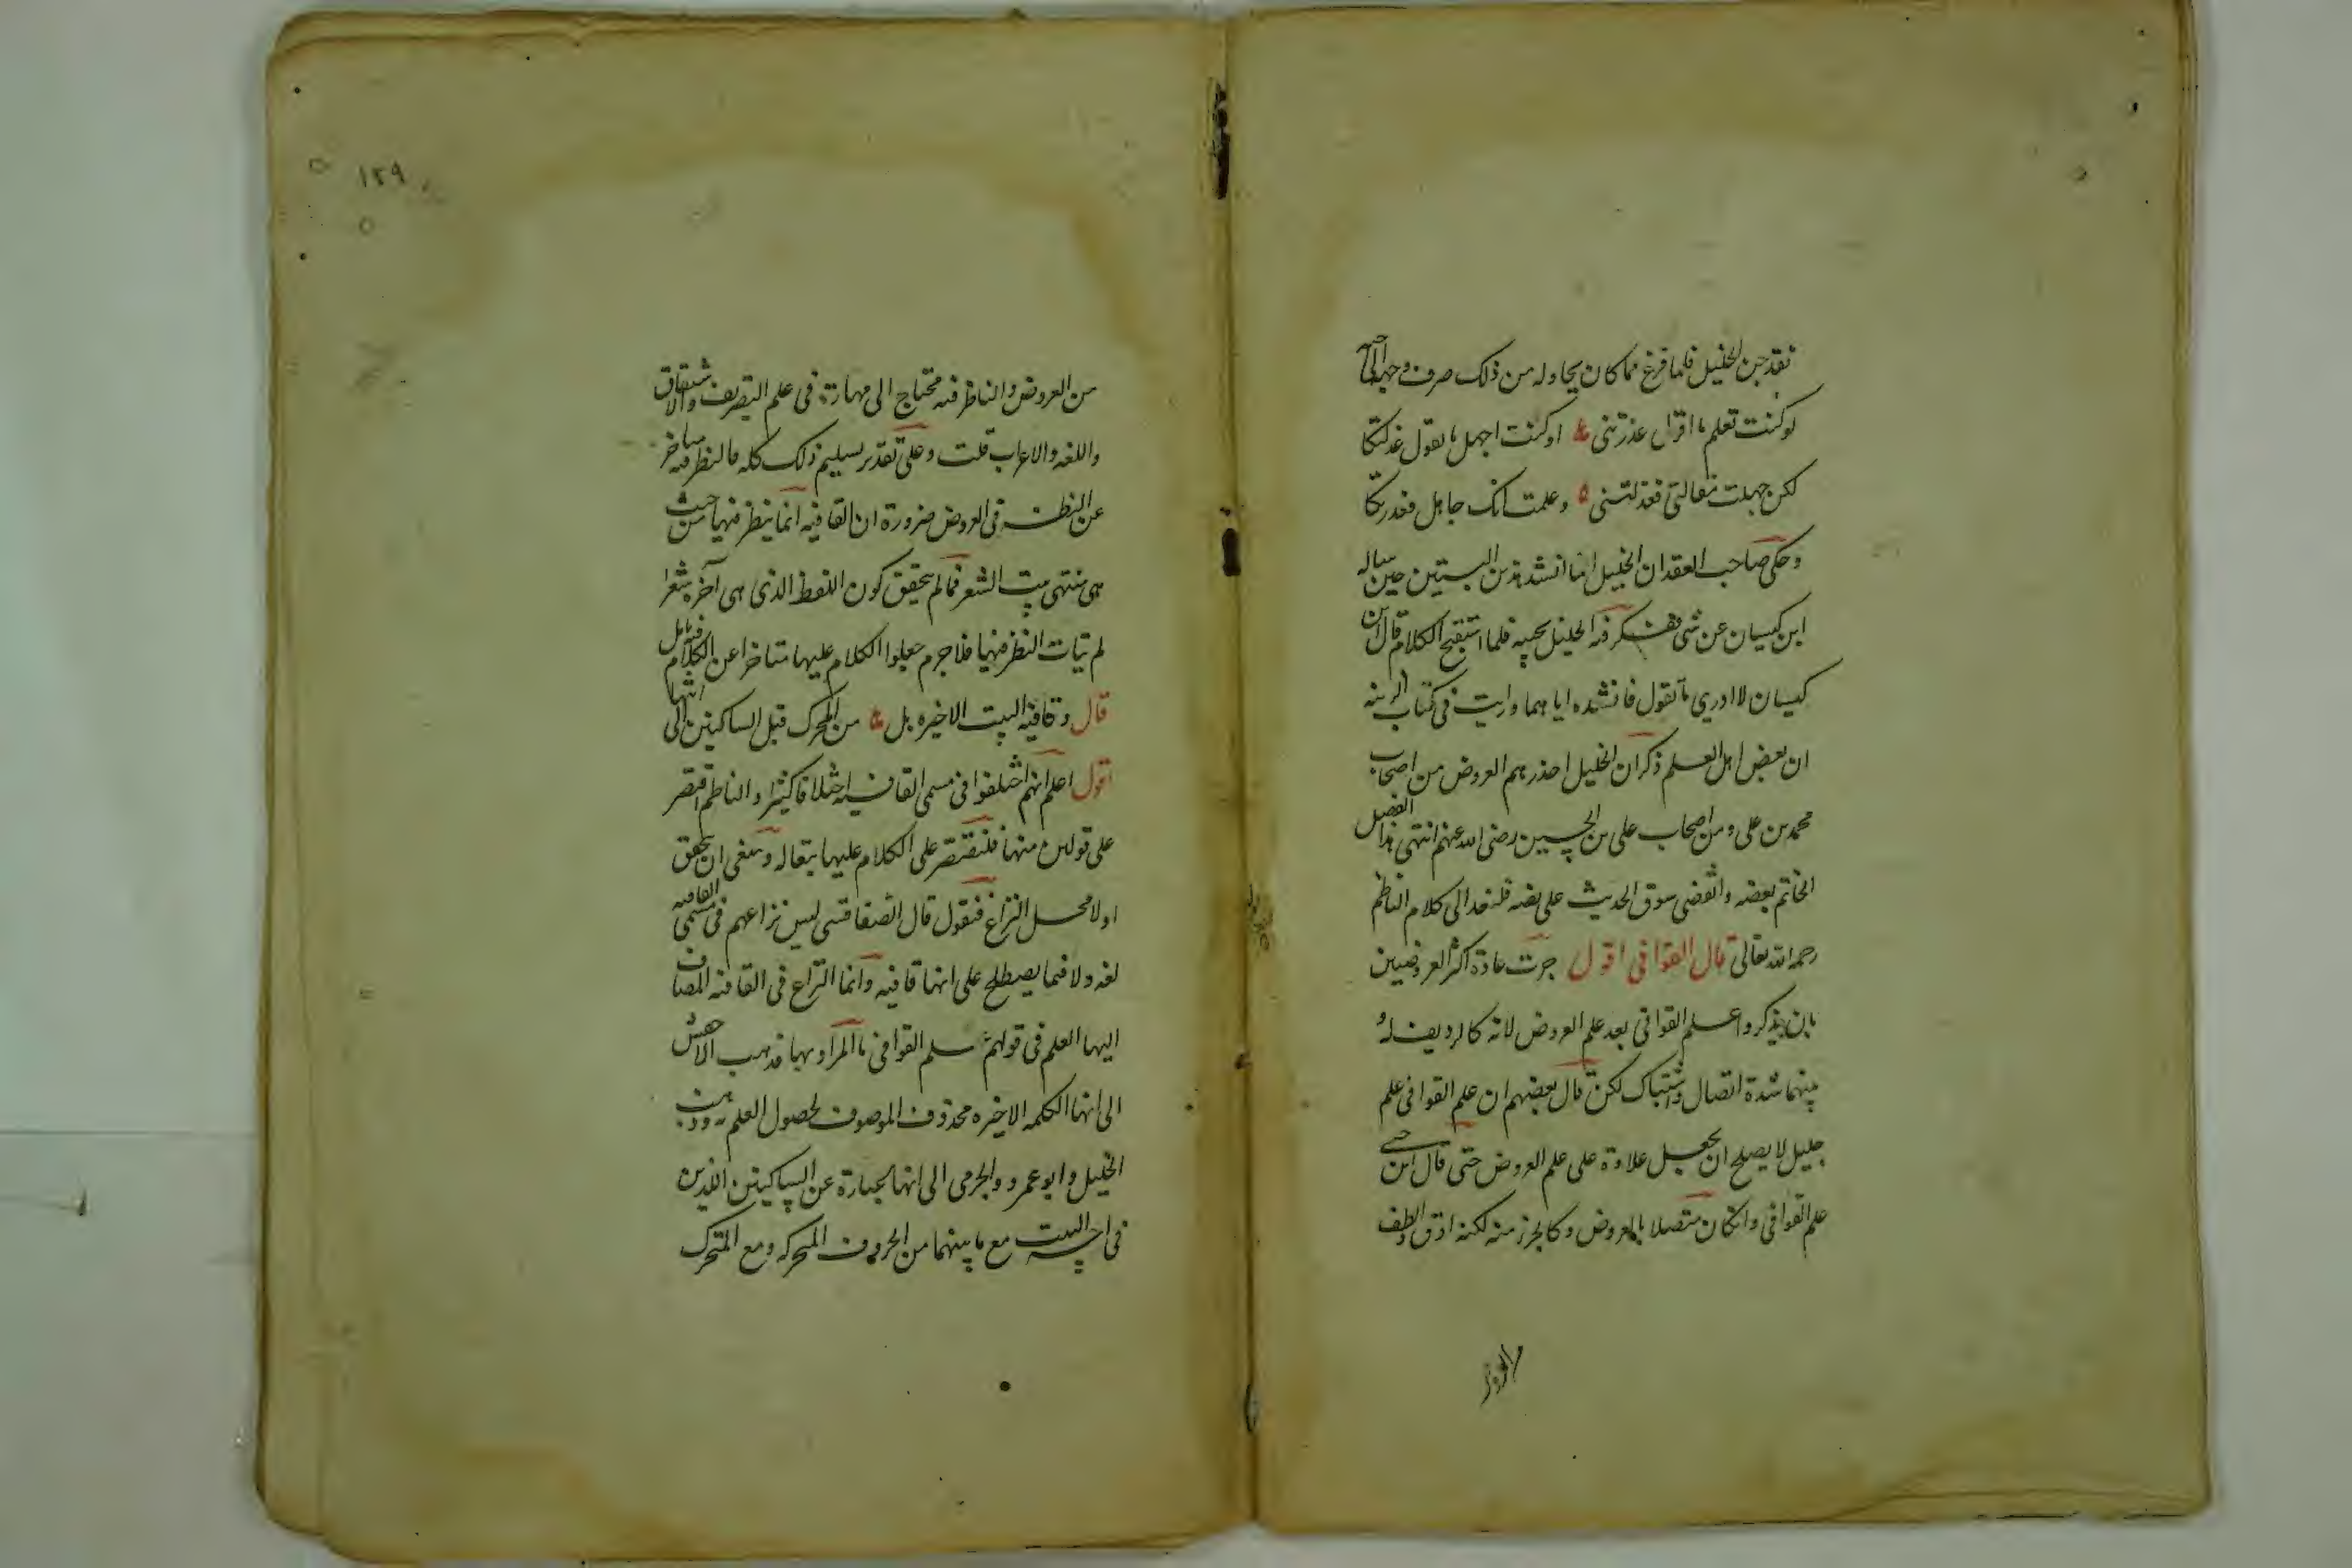 لوكنت تعلم ما اقول عذرتنى او كنت اجهل ما تقول عذلتكا
لكن جهلت مقالتى فعذلتنى وعلمت انك جاهل فعذرتكا
وحكى صاحب العقد ان الخليل انما انشد هذين البيتين حين ساله
ابن كيسان عن شى ففكر فيه الخليل يجيبه فلما استفتح الكلام قال ابن
كيسان لا ادري ما تقول فانشده اياهما ورايت فى كتاب الزينه
ان بعض اهل العلم ذكر ان الخليل اخذ رسم العروض من اصحاب
محمد بن على ومن اصحاب على بن الحسين رضى الله عنهم انتهى هذا الفصل
بعضه وانقضى سوق الحديث على نصه فلنعد الى كلام الناظم
رحمه الله تعالى قال القوافى اقول جرت عادة اكثر العروضيين
بان يذكروا علم القوافى بعد علم العروض لانه كالرديف له و
بينهما شدة اتصال واشتباك لكن قال بعضهم ان علم القوافى علم
جليل لا يصلح ان يجعل علاوة على علم العروض حتى قال ابن جنى
علم القوافى وان كان متصلا بالعروض وكالجزء منه لكنه ادق والطف
من العروض
١٢٩
من العروض والناظر فيه محتاج الى مهارة فى علم التصريف والاشتقاق
واللغه والاعراب قلت وعلى تقدير تسليم ذلك كله فالنظر فيه متاخر
عن النظر فى العروض ضرورة ان القافيه انما ينظر فيها من حيث
هى منتهى بيت الشعر فما لم يتحقق كون اللفظ الذى هى آخره شعرا
لم يتات النظر فيها فلا جرم جعلوا الكلام عليها متاخرا عن الكلام فيه تامل
قال وقافيه البيت الاخيره بل من المحرك قبل الساكنين الى انتها
اقول اعلم انهم اختلفوا فى مسمى القافيه اختلافا كثيرا والناظم اقتصر
على قولين منها فلنقتصر على الكلام عليهما تبعا له وينبغى ان يحقق
اولا محل النزاع فنقول قال الصفاقسى ليس نزاعهم فى مسمى القافيه
لغه ولا فيما يصطلح على انها قافيه وانما النزاع فى القافيه المضاف
اليها العلم فى قولهم علم القوافى ما المراد بها فذهب الاخفش
الى انها الكلمه الاخيره محذوف الموصوف لحصول العلم به وذهب
الخليل وابو عمرو والجرمى الى انها عبارة عن الساكنين اللذين
فى اخر البيت مع ما بينهما من الحروف المتحركه ومع المتحرك